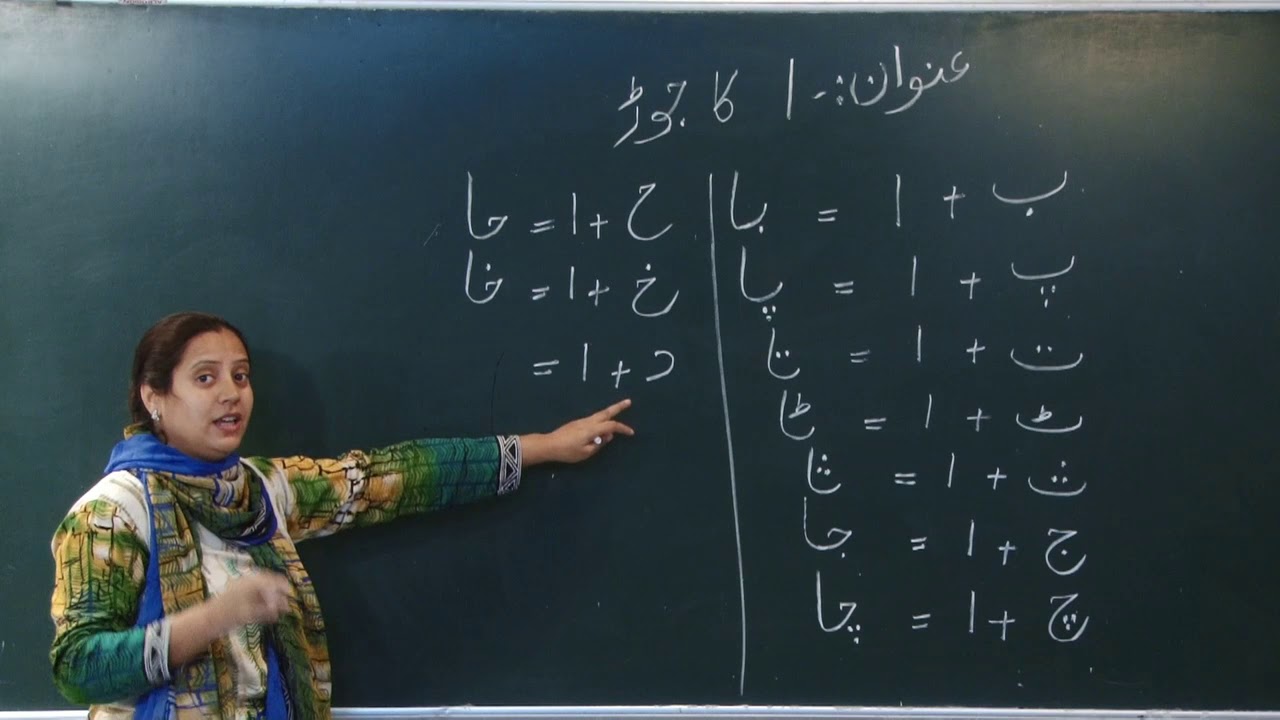 عنوان:- ا کا جوڑ
ب + ا = با
پ + ا = پا
ت + ا = تا
ٹ + ا = ٹا
ث + ا = ثا
ج + ا = جا
چ + ا = چا
ح + ا = حا
خ + ا = خا
د + ا =